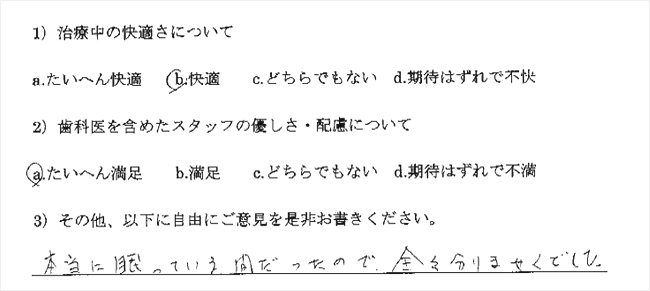 1) 治療中の快適さについて
a.たいへん快適 b.快適 c.どちらでもない d.期待はずれで不快
2) 歯科医を含めたスタッフの優しさ・配慮について
a.たいへん満足 b.満足 c.どちらでもない d.期待はずれで不満
3) その他、以下に自由にご意見を是非お書きください。
本当に眠っている間だったので、全く分りませんでした。